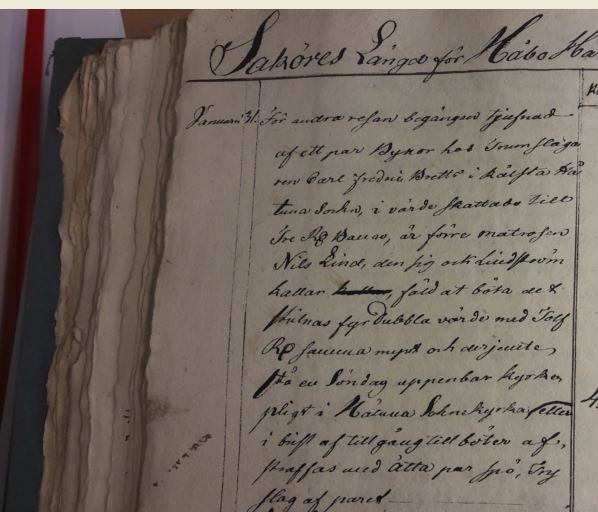 Saköres Längd för Håbo Hä
Januarii 31. För andra resan begången tjufnad
af ett par Byxor hos Trumslaga
ren Carl Fredric Brett i Kålsta Hå
tuna Sockn, i värde skattade till
Tre Rd Banco, är förre matrosen
Nils Lind, den sig ock Lindström
kallar, fäld at böta det
stulnas fyrdubbla värde med Tolf
Rd samma mynt och derjemte,
stå en Söndag uppenbar kyrko
pligt i Håtuna Sokne kyrka eller
i brist af tillgång till böter af,
straffas med Åtta par spö, Try
slag af paret